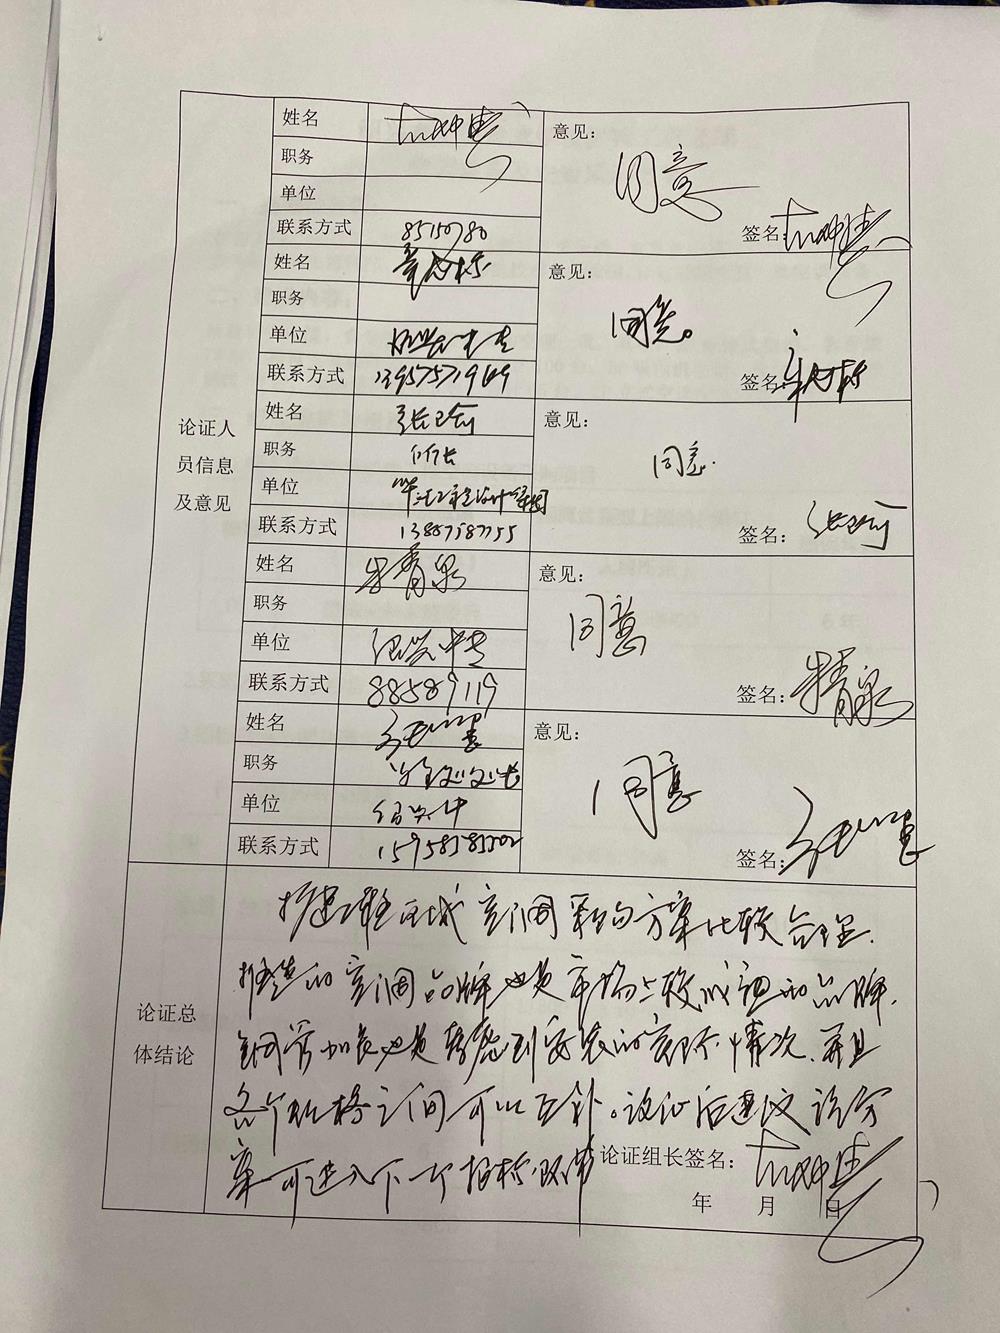 姓名
职务
单位
联系方式 85150780
意见：
同意
签名：
姓名
职务
单位
联系方式 13957571969
意见：
同意。
签名：
论证人
员信息
及意见
姓名 张卫
职务 所长
单位
联系方式 13867587755
意见：
同意.
签名：张卫
姓名 朱青泉
职务
单位 绍兴中专
联系方式 88589119
意见：
同意
签名：朱青泉
姓名
职务
单位 绍兴
联系方式
意见：
同意
签名：
论证总
体结论
扩建 区域空调采购方案比较合理.
推选的空调品牌也是市场上较成熟的品牌.
铜管加长也是考虑到安装的实际情况.并且
各个规格之间可以互补。论证后建议该方
案可进入下一个招标环节
论证组长签名：
年 月 日